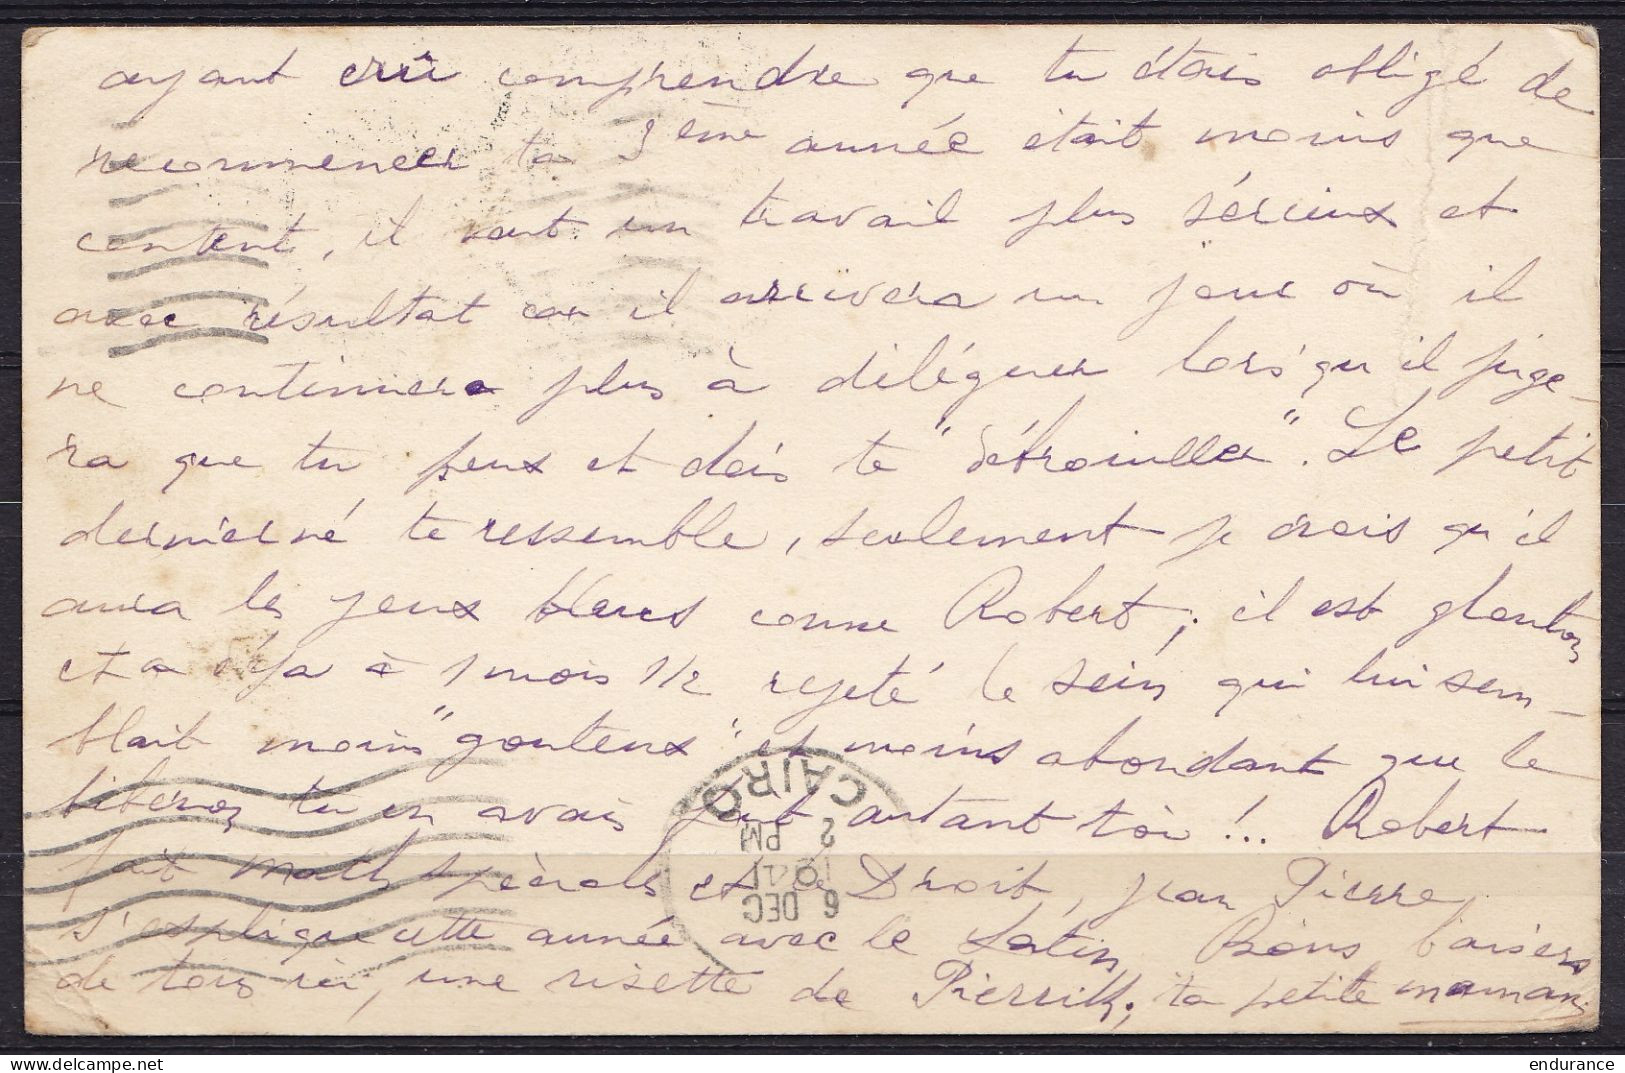 ayant crû comprendre que tu étais obligé de
recommencer ta 3ème année était moins que
content, il faut un travail plus sérieux et
avec résultat car il arrivera un jour où il
ne continuera plus à déléguer lorsqu'il juge-
ra que tu peux et dois te "débrouiller". Le petit
dernier né te ressemble, seulement je crois qu'il
aura les yeux bleus comme Robert; il est glouton
et a déja à 1 mois 1/2 rejeté le sein qui lui sem-
blait moins "gouteux" et moins abondant que le
biberon tu en avais fait autant toi!.. Robert
fait Math spéciales et le Droit, Jean Pierre
s'explique cette année avec le Latin Bons baisers
de tous ici, une risette de Pierrik, ta petite maman
CAIRO
2 PM
6 DEC
endurance